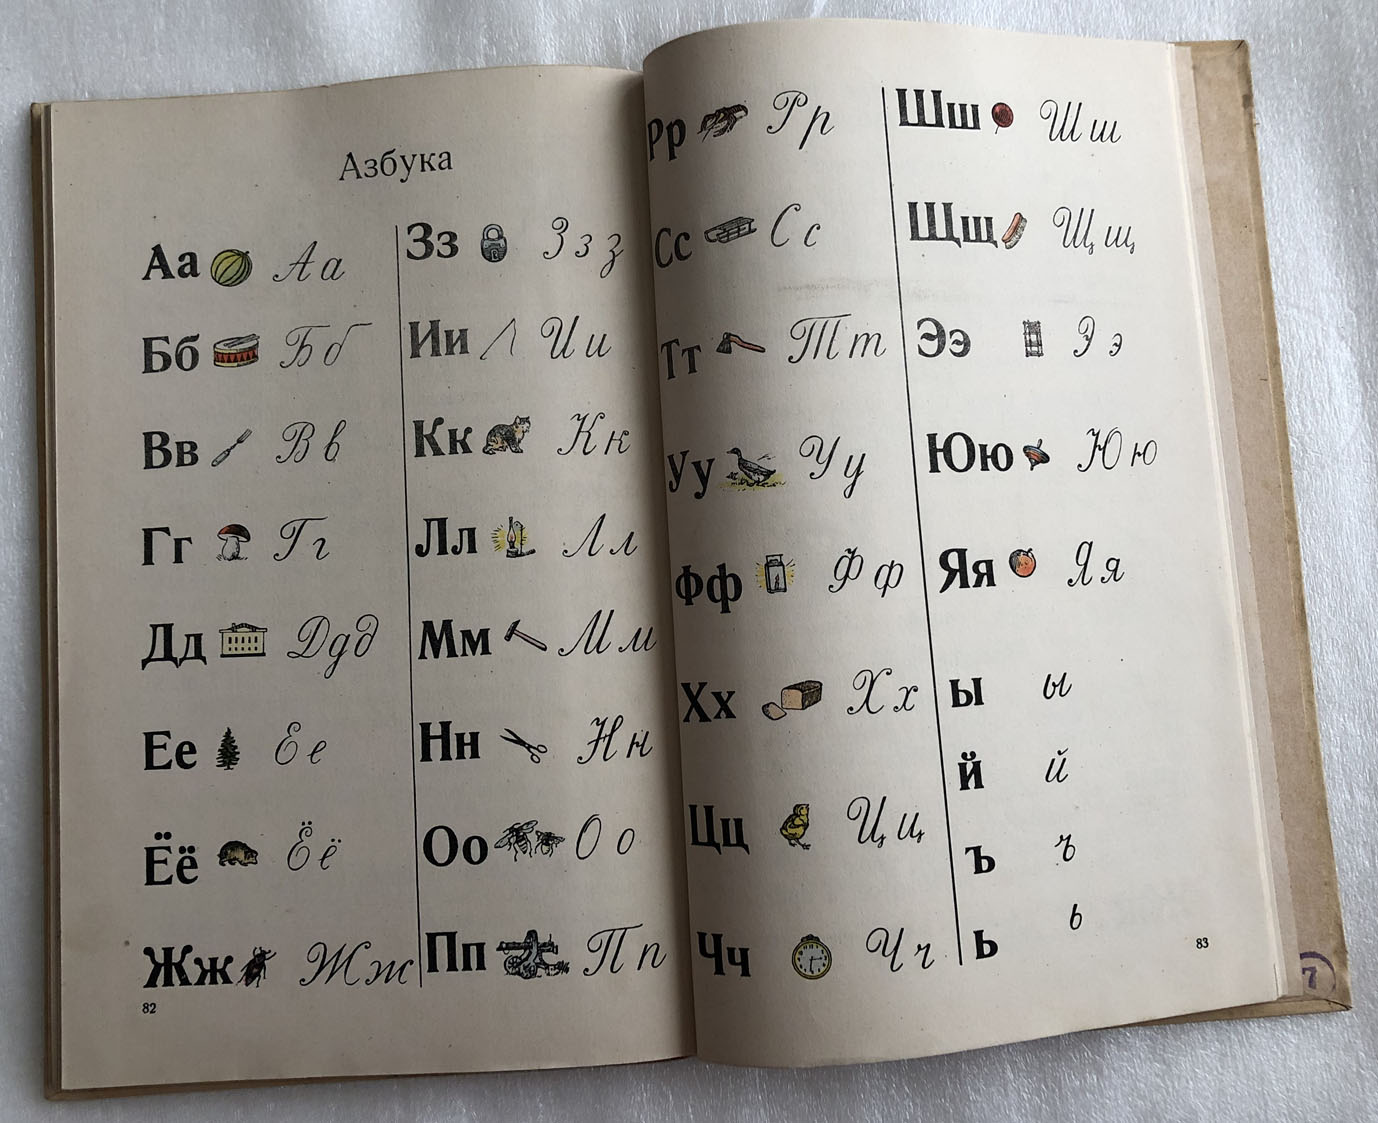 Азбука
Аа Аа
Бб Бб
Вв Вв
Гг Гг
Дд Ддд
Ее Ее
Ёё Ёё
Жж Жж
82
Зз Ззз
Ии Ии
Кк Кк
Лл Лл
Мм Мм
Нн Нн
Оо Оо
Пп Пп
Рр Рр
Сс Сс
Тт Тт
Уу Уу
Фф Фф
Хх Хх
Цц Цц
Чч Чч
Шш Шш
Щщ Щщ
Ээ Ээ
Юю Юю
Яя Яя
ы ы
й й
ъ ъ
ь ь
83
7